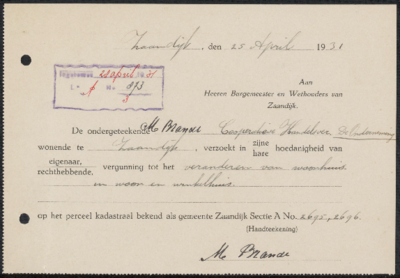 Zaandijk, den 25 April 1931
Ingekomen 28 april 1931
L. A No. 373
3
Aan
Heeren Burgemeester en Wethouders van
Zaandijk.
De ondergeteekende M Brande Coöperatieve
wonende te Zaandijk, verzoekt in zijne hoedanigheid van
hare
eigenaar,
rechthebbende, vergunning tot het veranderen van woonhuis
in woon en winkelhuis
op het perceel kadastraal bekend als gemeente Zaandijk Sectie A No. 2695, 2696.
(Handteekening)
M Brande